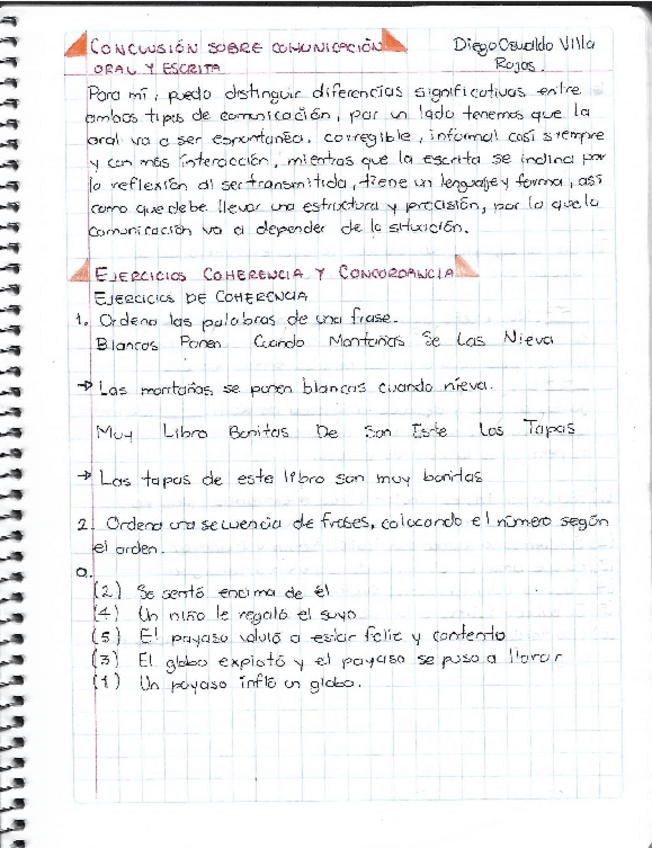 CONCLUSIÓN SOBRE COMUNICACIÓN
Diego Oswaldo Villa
ORAL Y ESCRITA
Rojas.
Para mí, puedo distinguir diferencias significativas entre
ambos tipos de comunicación, por un lado tenemos que la
oral va a ser espontanéa, corregible, informal casi siempre
y con más interacción, mientras que la escrita se inclina por
la reflexión al ser transmitida, tiene un lenguaje y forma, así
como que debe llevar una estructura y precisión, por lo que la
comunicación va a depender de la situación.
EJERCICIOS COHERENCIA Y CONCORDANCIA
EJERCICIOS DE COHERENCIA
1. Ordena las palabras de una frase.
Blancas Ponen Cuando Montañas Se Las Nieva
→ Las montañas se ponen blancas cuando nieva.
Muy Libro Bonitas De Son Este Las Tapas
→ Las tapas de este libro son muy bonitas
2. Ordena una secuencia de frases, colocando el número según
el orden.
a.
(2) Se sentó encima de él
(4) Un niño le regaló el suyo
(5) El payaso volvió a estar feliz y contento
(3) El globo explotó y el payaso se puso a llorar
(1) Un payaso infló un globo.